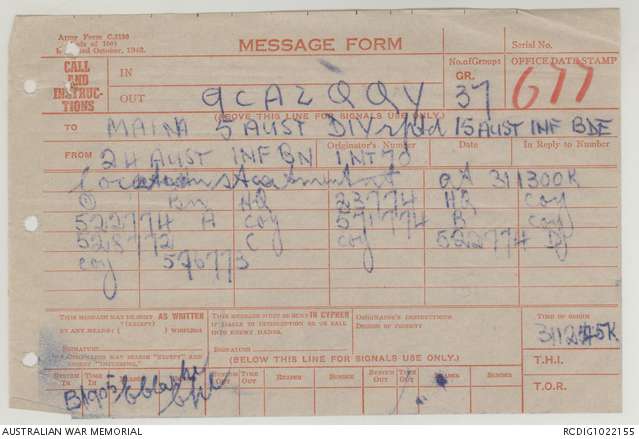 Army Form C.2136
Pads of 100
October, 1942.
MESSAGE FORM
Serial No.
CALL AND INSTRUC-TIONS
IN
OUT
No. of Groups
GR.
37
OFFICE DATE STAMP
677
(ABOVE THIS LINE FOR SIGNALS USE ONLY.)
TO
MAIN 5 AUST DIV rptd 15 AUST INF BDE
FROM
24 AUST INF BN
Originator's Number
INT 70
Date
In Reply to Number
Location statement at 311300K
Bn HQ 523774 HQ coy
522774 A coy 571774 B coy
528772 C coy 522774 D
coy 576773
THIS MESSAGE MAY BE SENT AS WRITTEN
BY ANY MEANS (EXCEPT) WIRELESS
SIGNATURE
THIS MESSAGE MUST BE SENT IN CYPHER
IF LIABLE TO INTERCEPTION OR TO FALL INTO ENEMY HANDS.
(SIGNATURE
Originator's Instructions
Degree of Priority
TIME OF ORIGIN
311245K
(BELOW THIS LINE FOR SIGNALS USE ONLY.)
T.H.I.
T.O.R.
SYSTEM IN
TIME IN
READER
SENDER
SYSTEM OUT
TIME OUT
READER
SENDER
SYSTEM OUT
TIME OUT
READER
SENDER
B 1905
AUSTRALIAN WAR MEMORIAL
RCDIG1022155